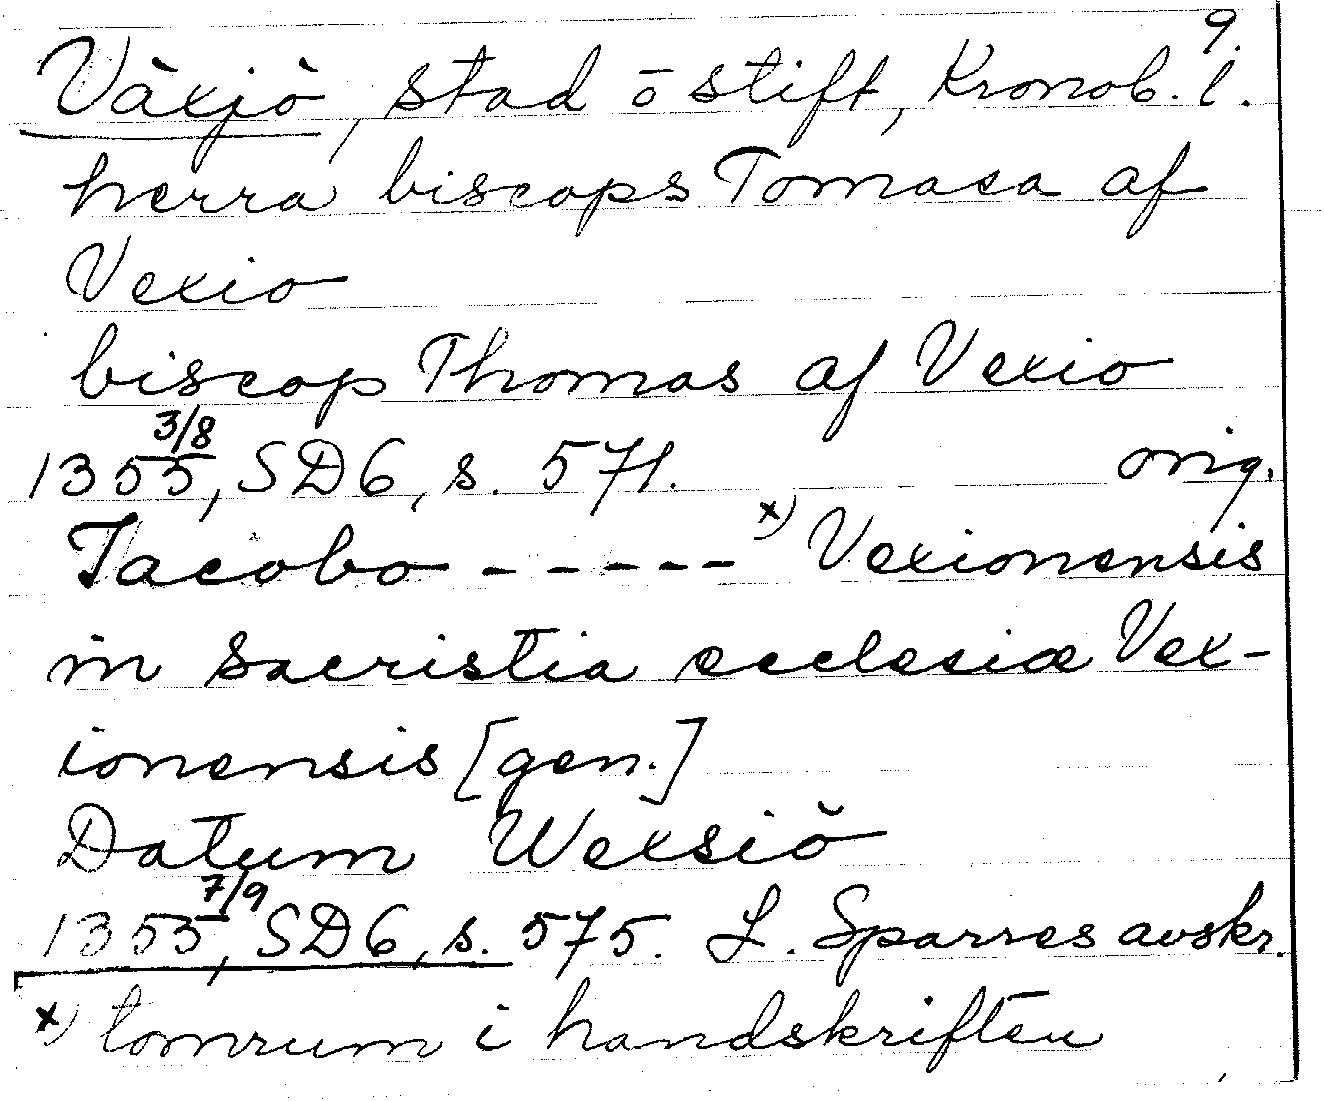 9.
Växjö, stad o stift, Kronob. l.
herra biscops Tomasa af
Vexio
biscop Thomas af Vexio
1355 3/8, SD6, s. 571. orig.
Jacobo - - - - - - x) Vexionensis
in sacristia ecclesiæ Vex-
ionensis [gen.]
Datum Wexsiö
1355 7/9, SD6, s. 575. L. Sparres avskr.
x) tomrum i handskriften